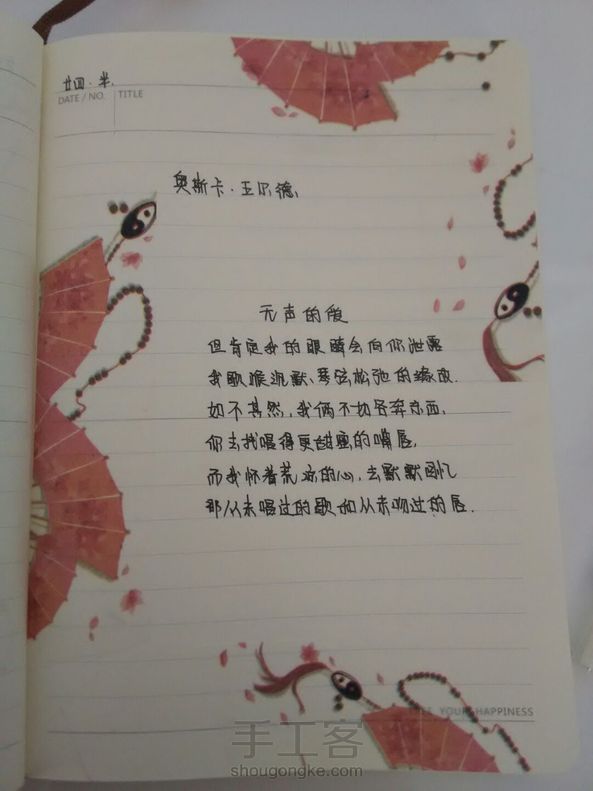 廿四·半.
DATE / NO. TITLE
奥斯卡·王尔德、
无声的
但肯定我的眼睛会向你泄露
我歌喉沉默、琴弦松弛的缘故.
如不其然,我俩不各奔东西,
你去找唱得更甜蜜的嘴唇,
而我怀着荒凉的心,去默默回忆
那从未唱过的歌和从未吻过的唇.
YOUR HAPPINESS
手工客
shougongke.com